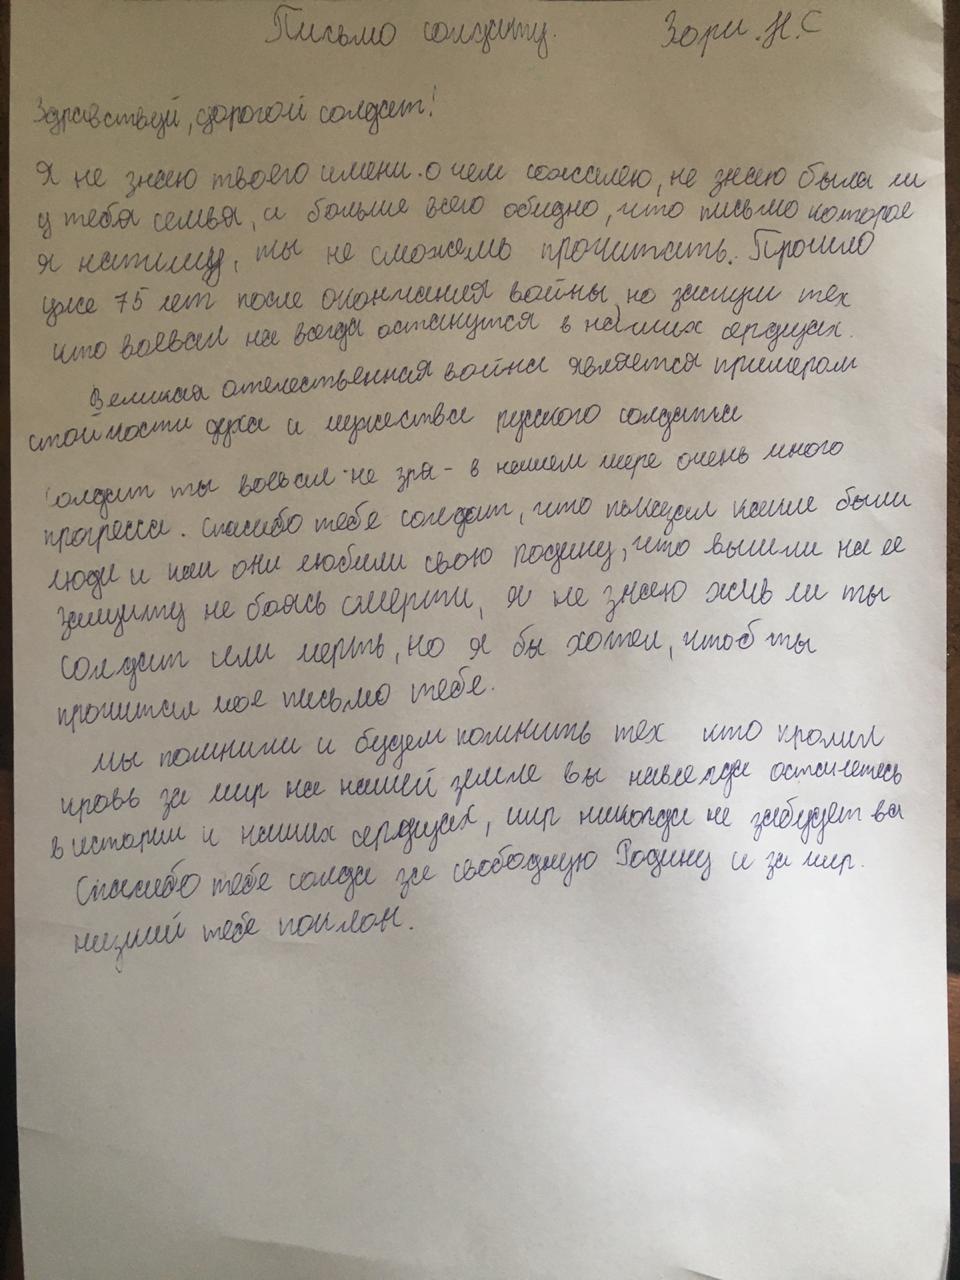 Письмо солдату. Зори .Н.С
Здравствуй, дорогой солдат!
Я не знаю твоего имени. о чем сожалею, не знаю была ли
у тебя семья, и больше всего обидно, что письмо которое
я напишу, ты не сможешь прочитать. Прошло
уже 75 лет после окончания войны, но заслуги тех
кто воевал на всегда останутся в наших сердцах.
Великая отечественная война является примером
стойкости духа и мужества руского солдата
солдат ты воевал не зря - в нашем мире очень много
прогресса. Спасибо тебе солдат, что показал какие были
люди и как они любили свою родину, что вышли на ее
защиту не боясь смерти, я не знаю жив ли ты
солдат или мертв, но я бы хотел, чтоб ты
прочитал мое письмо тебе.
мы помнили и будем помнить тех кто пролил
кровь за мир на нашей земле вы навсегда останетесь
в истории и наших сердцах, мир никогда не забудет ва
Спасибо тебе солда за свободную Родину и за мир.
низкий тебе поклон.